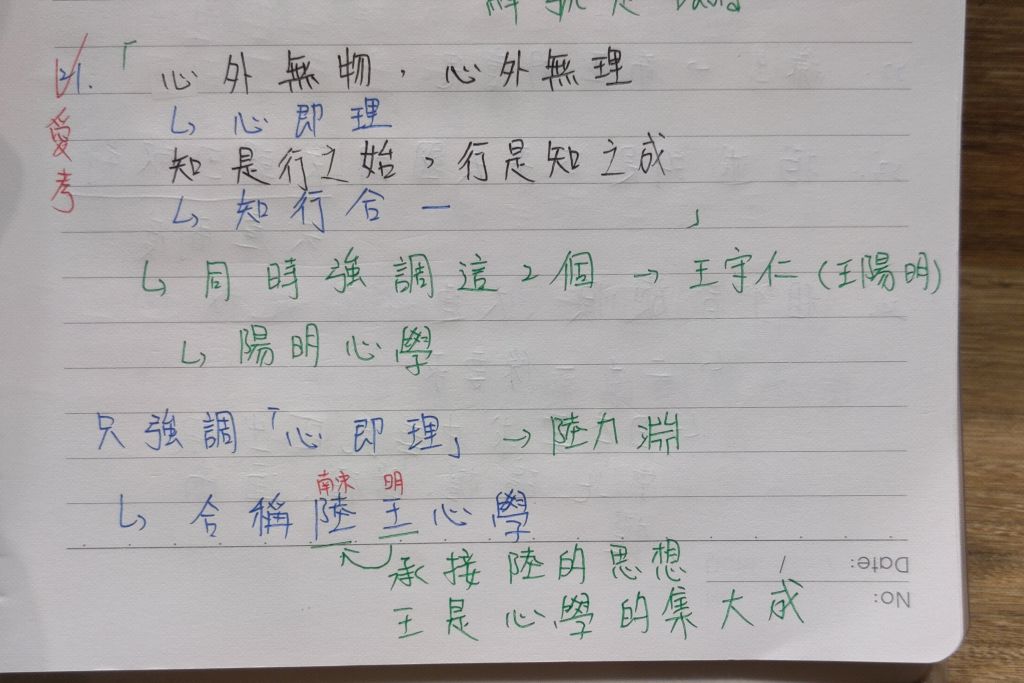 21.「心外無物，心外無理
愛考
↳ 心即理
知是行之始，行是知之成
↳ 知行合一 」
↳ 同時強調這2個 → 王守仁（王陽明）
↳ 陽明心學
只強調「心即理」→ 陸力淵
南宋 明
↳ 合稱陸王心學
承接陸的思想
王是心學的集大成
Date: /
No: